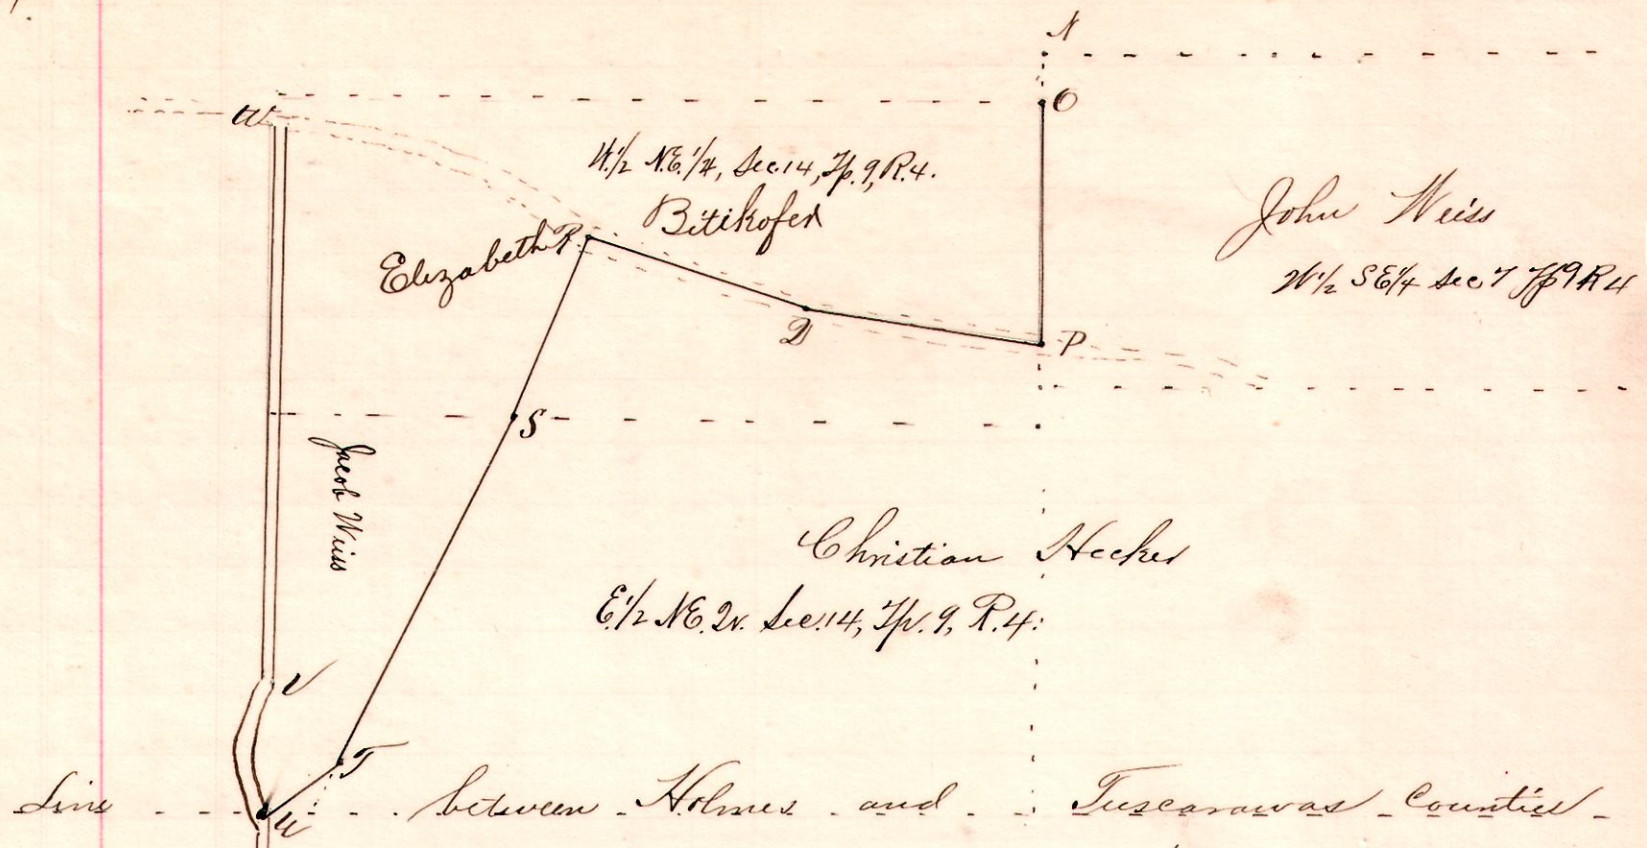 N
O
W
W.1/2 N.E.1/4, Sec.14, Tp.9, R.4.
Elizabeth Bitikofer
R.
John Weiss
W1/2 SE1/4 Sec 7 Tp9 R4
Q
P
S
Jacob Weiss
Christian Hecker
E.1/2 N.E. Qr. Sec.14, Tp. 9, R.4.
V
T
Line between Holmes and Tuscarawas Counties
U